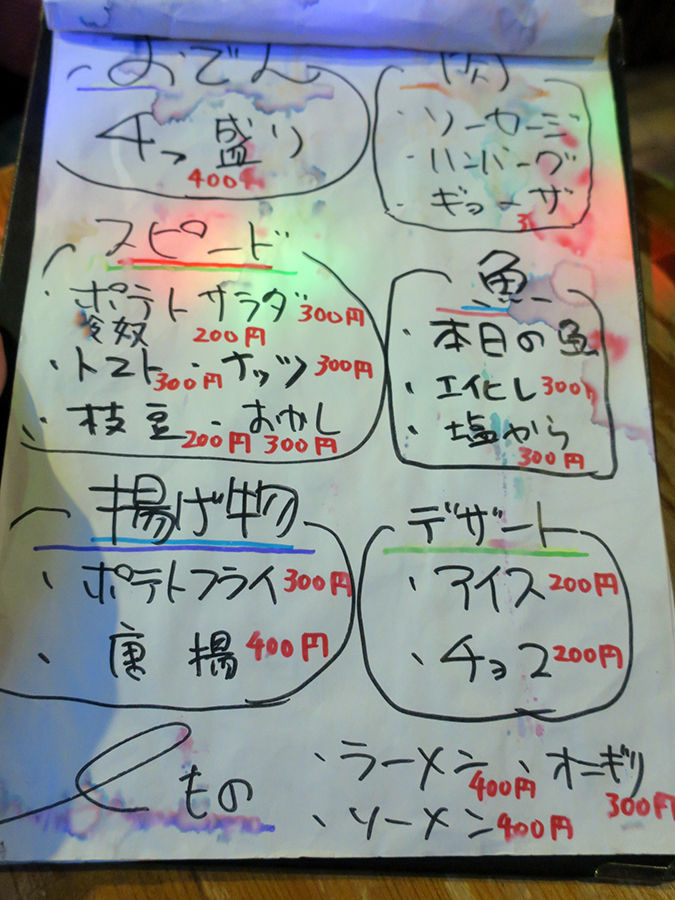 おでん
4コ盛り
400円
肉
・ソーセージ
・ハンバーグ
・ギョーザ
スピード
・ポテトサラダ 300円
冷奴 200円
・トマト 300円 ・ナッツ 300円
・枝豆 200円 ・おかし 300円
魚
・本日の魚
・エイヒレ 300円
・塩から 300円
揚げ物
・ポテトフライ 300円
・唐揚 400円
デザート
・アイス 200円
・チョコ 200円
もの
・ラーメン 400円 ・オニギリ 300円
・ソーメン 400円